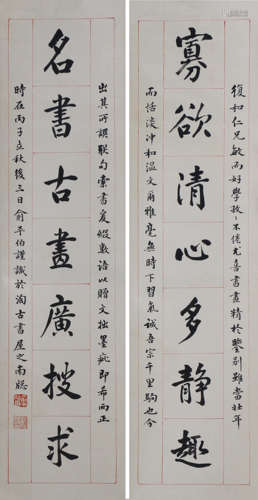 寡欲清心多静趣
復和仁兄敏而好學孜々不倦尤善書畫精於鑒别雖當壮年
而恬淡沖和温文爾雅毫無時下習氣誠吾宗千里駒也今
名書古畫廣搜求
出其所譔聯句索書爰綴數語以贈文拙墨疵即希而正
時在丙子立秋後三日俞平伯謹識於淘古書屋之南牕